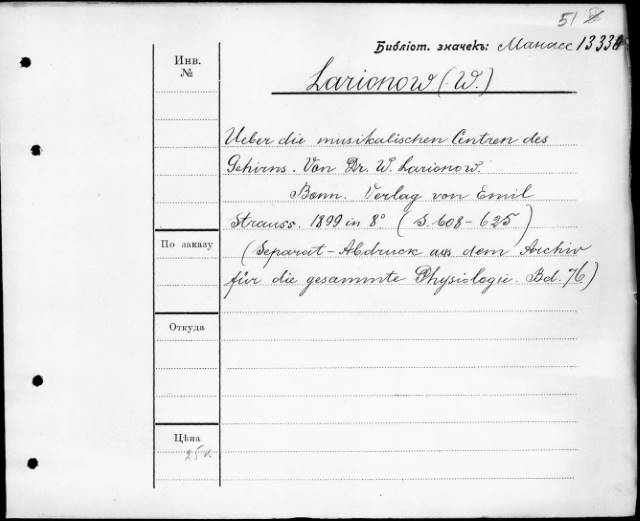 51
Библіот. значекъ: Манасс 13338
Инв.
№
Larionow (W.)
Ueber die musikalischen Centren des
Gehirns. Von Dr. W. Larionow.
Bonn. Verlag von Emil
Strauss. 1899 in 8° (S. 608-625)
По заказу
(Separat-Abdruck aus dem Archiv
für die gesammte Physiologie. Bd. 76.)
Откуда
Цѣна
25к